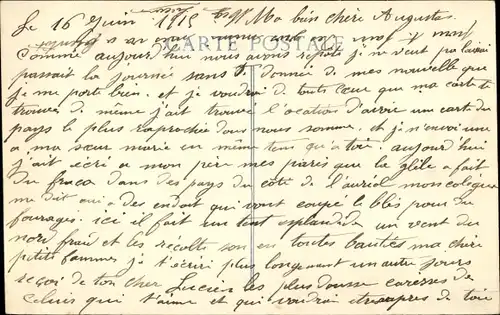 Le 16 Juin 1915 Ma bien chère Augusta
CARTE POSTALE
Comme aujourd'hui nous avons repos je ne veut pa laisai
passait la journé sans donnée de mes nouvelle que
je me porte bien. et je voudrai de toute cœur que ma carte te
trouve de même j'ait trouvé l'ocation d'avoir un carte du
pays le plus raproché dous nous somme. et je n'envoi une
a ma sœur marie en même tens qu'a toi. aujourd'hui
j'ait écri a mon père mes pares que la grêle a fait
du fraca dans des pays du côté de
me dit qui a des endroit qui vont coupé le blés pour du
fourages. ici il fait un tent esplandide un vent du
nord fraid et les récolte son en toutes bautées ma chère
petit femme je t'écriré plus longement un autre jours
reçoi de ton cher Lucien les plus dousse caresses de
Celuis qui t'aime et qui voudrai etre aupres de toie